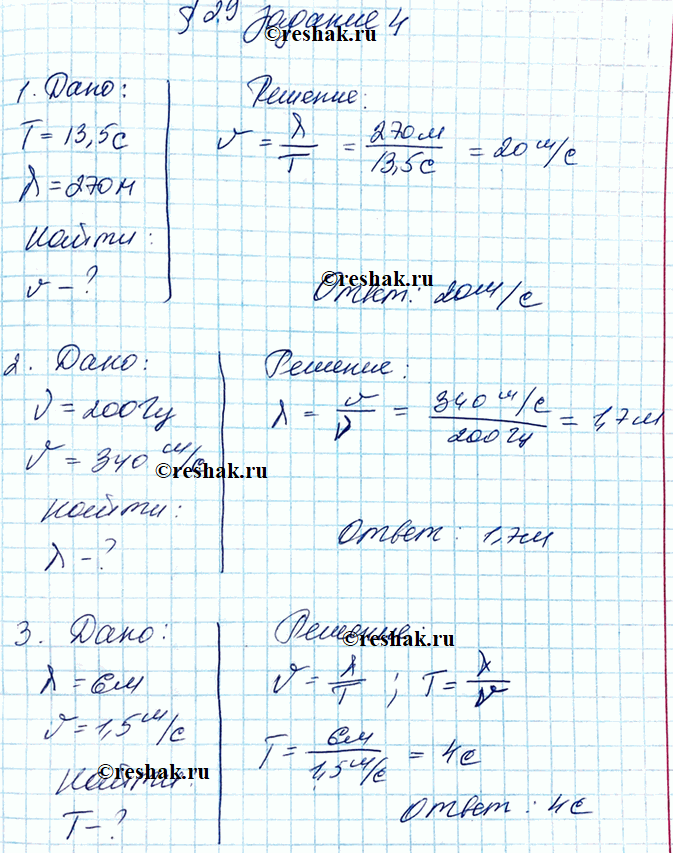 § 29 Задание 4
©reshak.ru
1. Дано:
T = 13,5с
λ = 270м
Найти:
v - ?
Решение:
v = λ/T = 270м/13,5с = 20 м/с
©reshak.ru
Ответ: 20 м/с
2. Дано:
ν = 200Гц
v = 340 м/с
©reshak.ru
Найти:
λ - ?
Решение:
λ = v/ν = 340 м/с / 200Гц = 1,7м
Ответ: 1,7м
3. Дано:
λ = 6м
v = 1,5 м/с
Найти:
©reshak.ru
T - ?
Решение:
©reshak.ru
v = λ/T ; T = λ/v
T = 6м / 1,5 м/с = 4с
Ответ: 4с